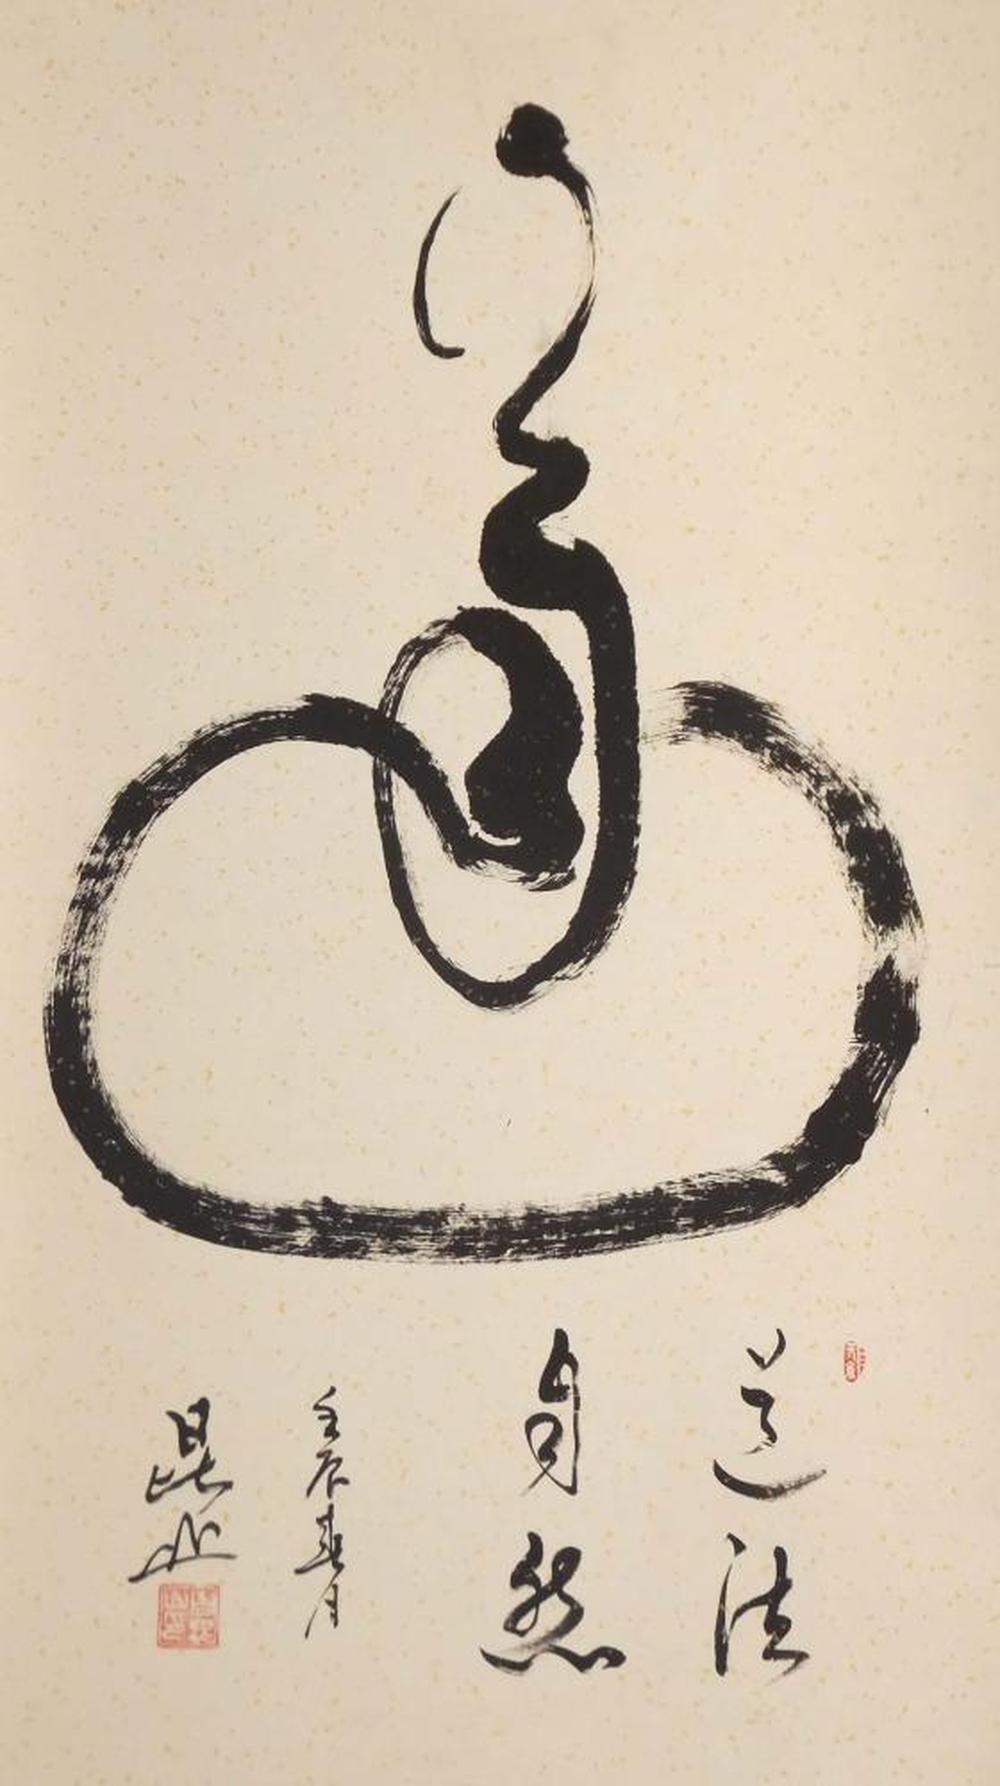 道法
自然
壬辰春月
昆山